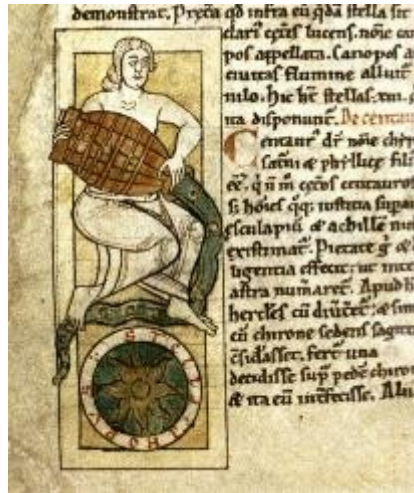 demonstrat. Pret̄ea qd infra eū qdā stella sit
clari lucens. noīe can
pos appellata. Canopos a
ciuitas flumine alluit
nilo. hic ht̄ stellas. xiii. q
ta disponunt̄. De centau
Centaur᷒ dr̄ noīe chyr
& phyllire fili
centauros
s; hoīes qq; iustitia supa
esculapiū & achillē nut
existimat᷒. Pietate g̊ &
ligentia effecit; ut int
astra numaret᷒. Apud h
hercles cū & sim
cū chirone sedens sagitt
fert᷒ una
decidisse sup̄ pedē chiro
& ita eū int̄fecisse. Aliu
STELLA